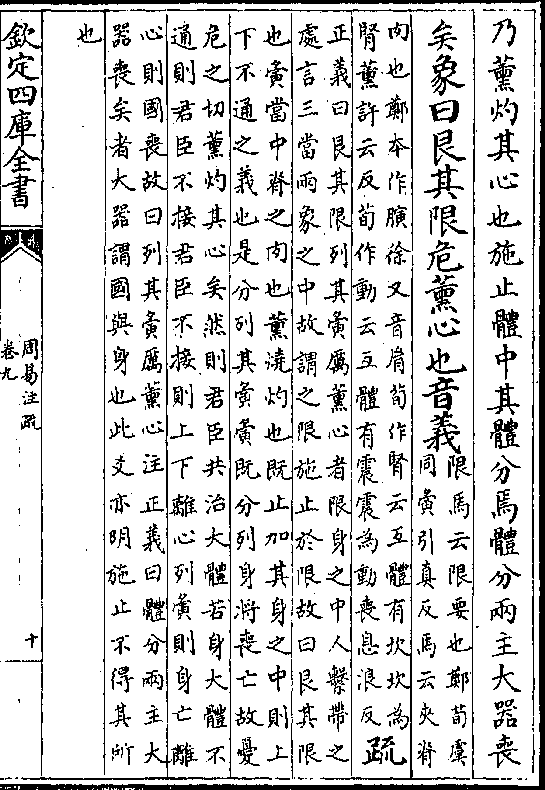 乃薰灼其心也施止體中其體分焉體分兩主大器喪
矣象曰艮其限危薰心也音義
限馬云限要也鄭荀虞
同夤引真反馬云夾脊
肉也鄭本作䐜徐又音胤荀作腎云互體有坎坎為
腎薰許云反荀作動云互體有震震為動喪息浪反
疏
正義曰艮其限列其夤厲薰心者限身之中人繫帶之
處言三當兩象之中故謂之限施止於限故曰艮其限
也夤當中脊之肉也薰燒灼也既止加其身之中則上
下不通之義也是分列其夤夤既分列身將喪亡故憂
危之切薰灼其心矣然則君臣共治大體若身大體不
通則君臣不接君臣不接則上下離心列夤則身亡離
心則國喪故曰列其夤厲薰心注正義曰體分兩主大
器喪矣者大器謂國與身也此爻亦明施止不得其所
也
欽定四庫全書
周易注疏
卷九
十